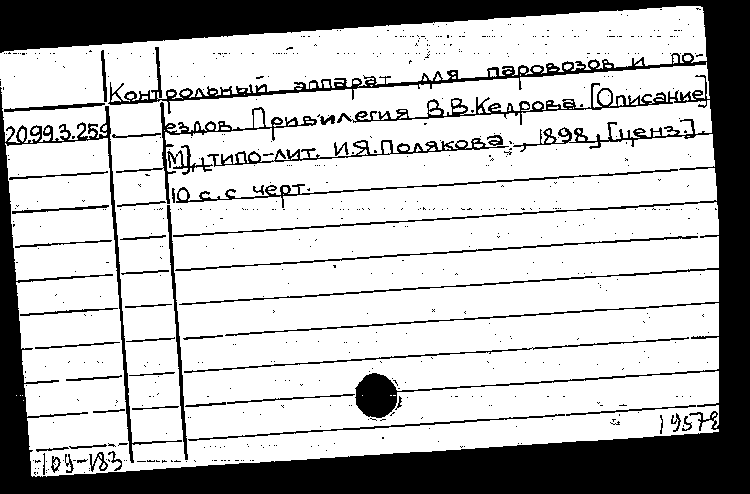 Контрольный аппарат для паровозов и по-
20.99.3.259. ездов. Привилегия В.В.Кедрова. [Описание]
[М], типо-лит. И.Я.Полякова, 1898, [ценз.].
10 с. с черт.
19578
109-183